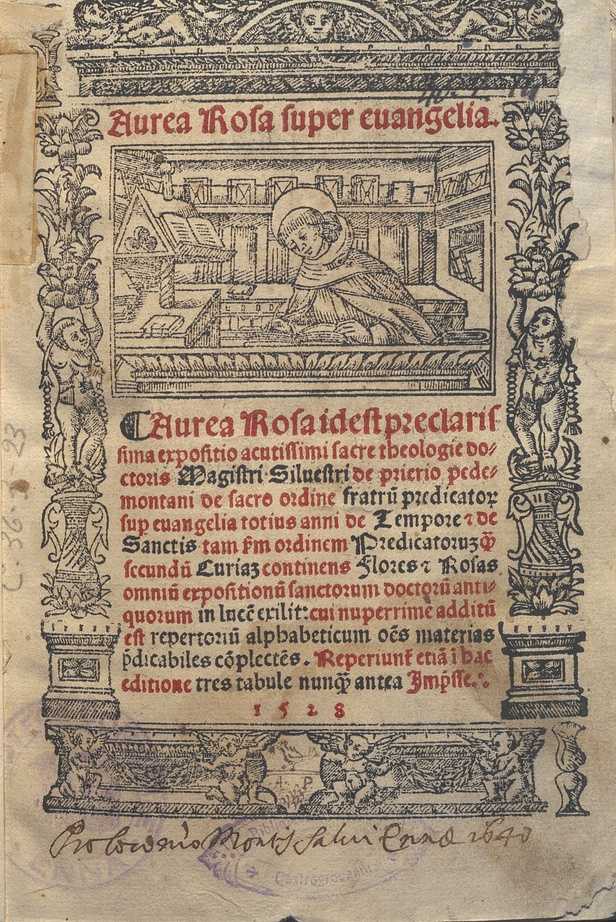 Aurea Rosa super euangelia.
Aurea Rosa idest preclaris
sima expositio acutissimi sacre theologie do⸗
ctoris Magistri Siluestri de prierio pede⸗
montani de sacro ordine fratrũ predicatoꝝ
suꝑ euangelia totius anni de Tempore ⁊ de
Sanctis tam ẜm ordinem Predicatorũ ꝙ̃
secundũ Curiaʒ continens Flores ⁊ Rosas
omniũ expositionũ sanctorum doctorũ anti⸗
quorum in lucẽ exilit: cui nuperrime additũ
est repertoriũ alphabeticum oẽs materias
p̃dicabiles cõplectẽs. Reperiunt̃ etiã ĩ hac
editione tres tabule nunꝙ̃ antea Imp̃sse.
1528
C. 36-3-23
Montis Salui Ennæ 1640